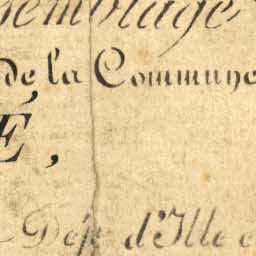 semblage
de la Commune
E,
Dép.t d'Ille e